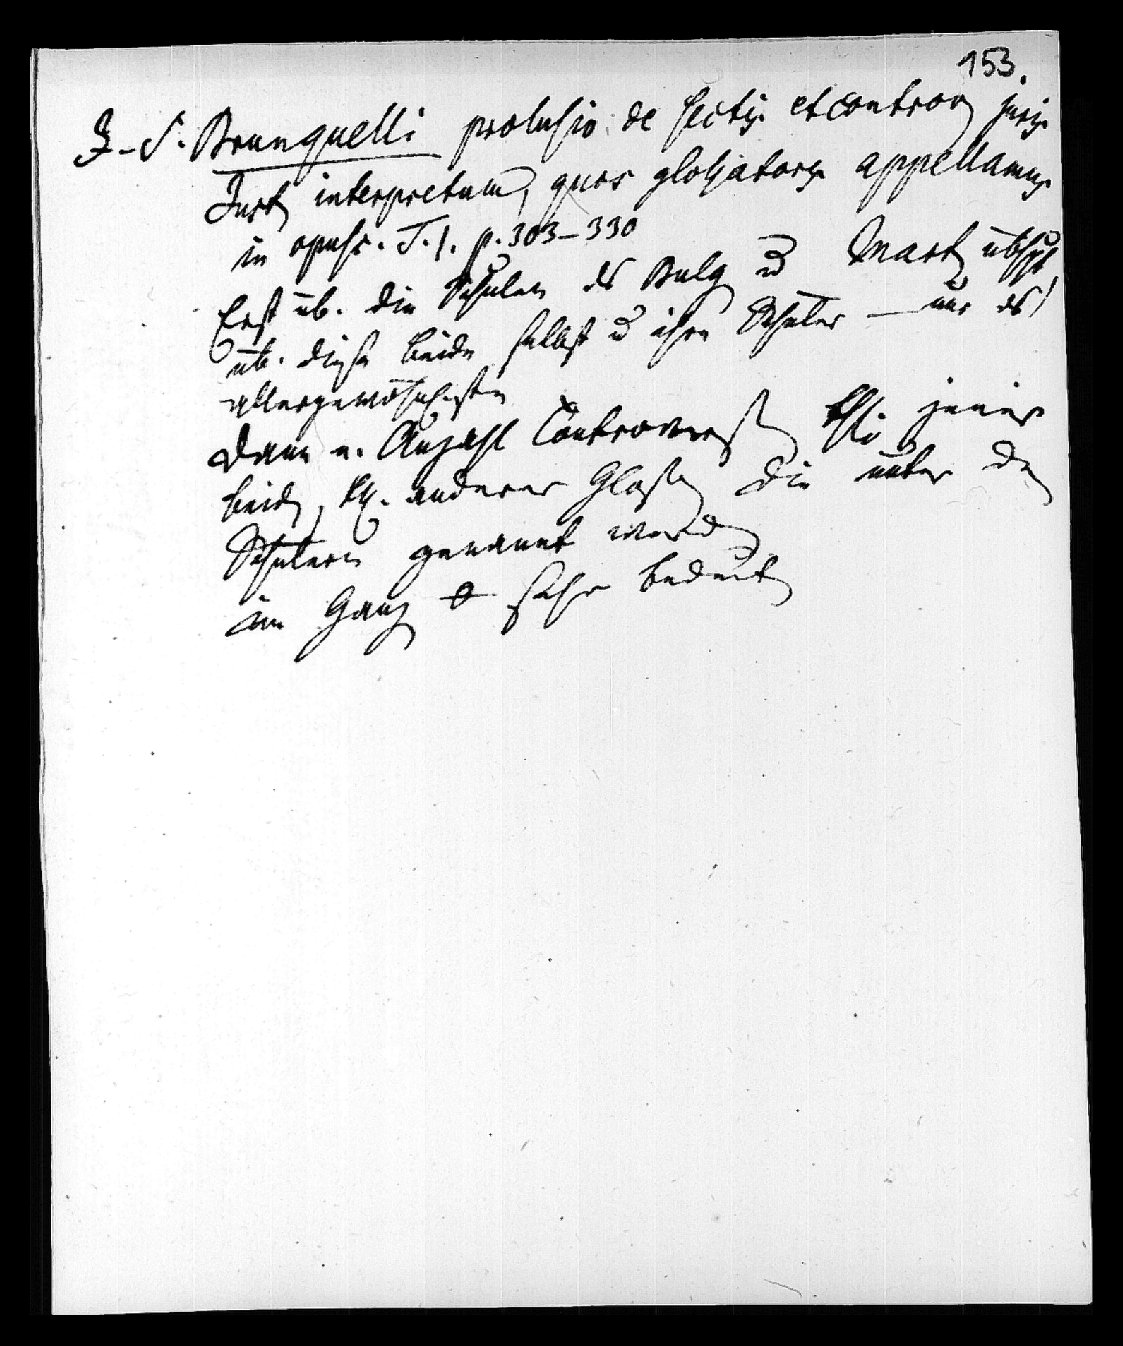 153.
J. S. Brunquelli prolusio de sectis et controv juris
Just interpretum, quos glossatores appellamus
in opusc. T. 1. p. 303–330
Erst üb. die Schulen des Bulg u Mart übhpt,
üb. diese beide selbst u ihre Schüler — nur das
allergewöhnlichste
Dann e. Anzahl Controversen jener
beid, anderer Gloss die unter den
Schülern genannt werden
im Ganz sehr bedeut